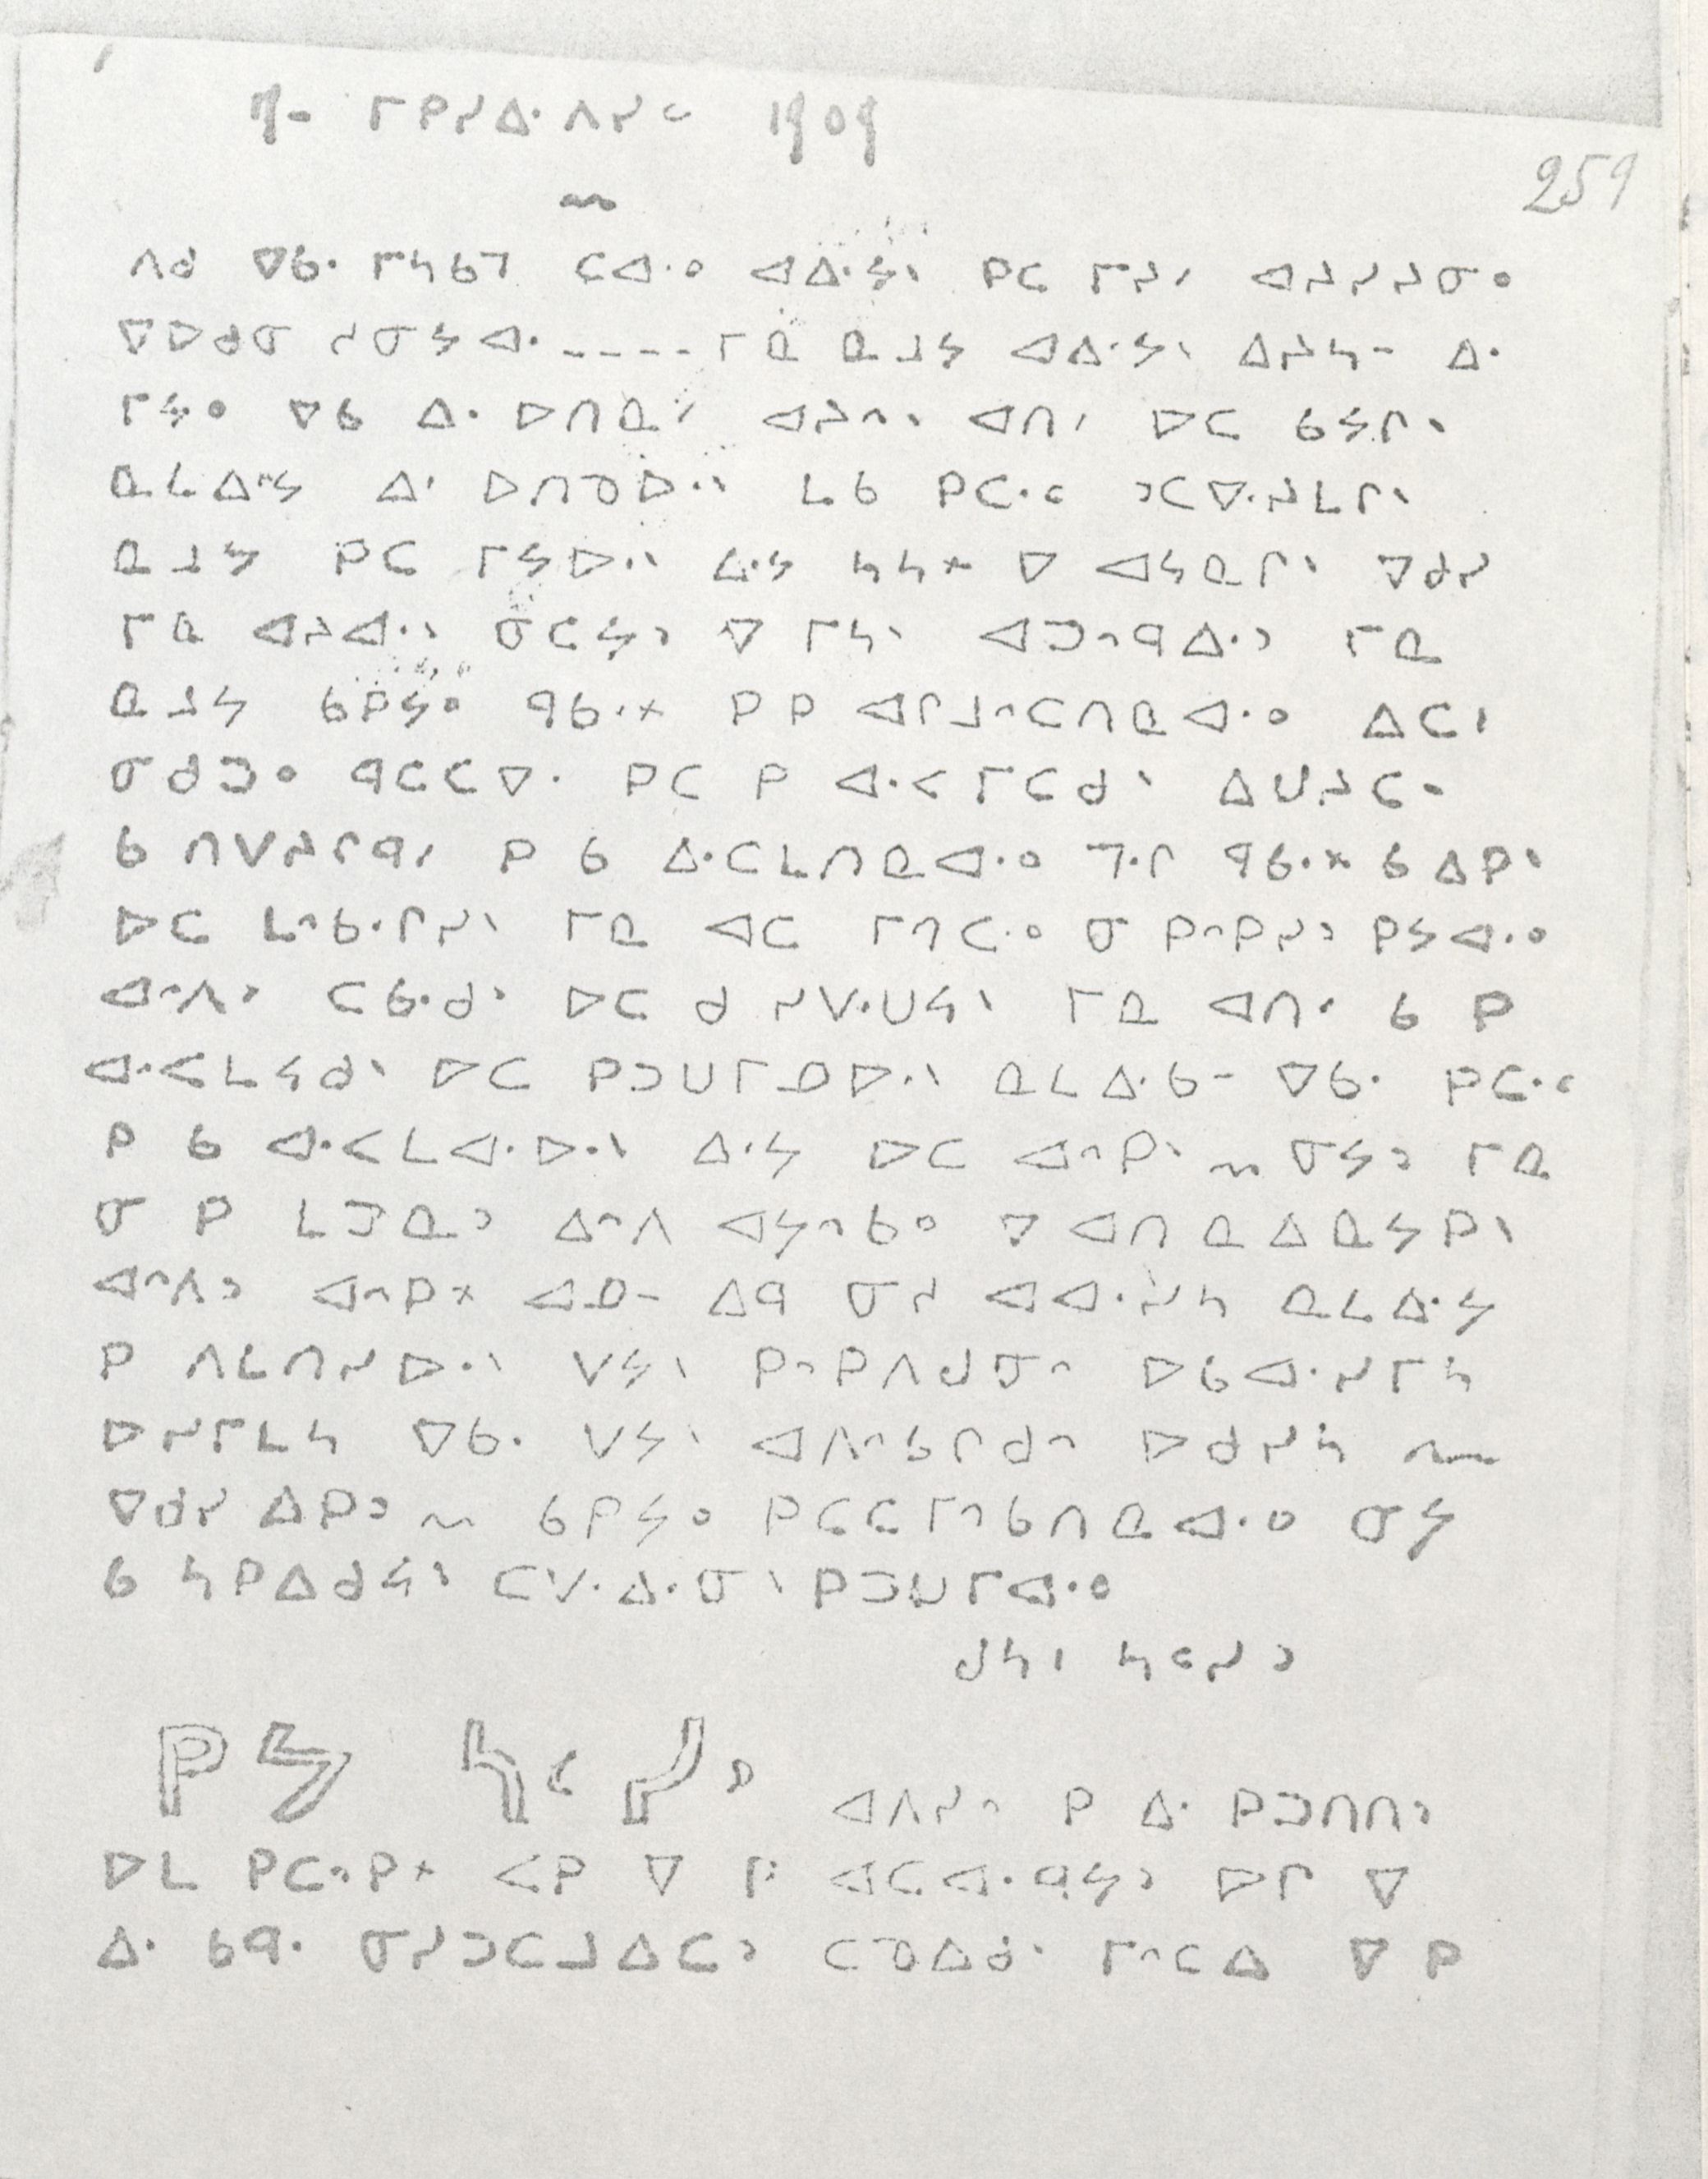 ᒥᑭᓯᐏᐱᓯᑦ 1909
259
ᐱᑯ ᐁᑲᐧ ᒥᓴᑲᒣ ᑕᐊᐧᐤ ᐊᐃᐧᔭᐠ ᑭᑕ ᒥᓯᐟ ᐊᓯᓯᓯᓂᐤ
ᐁᐅᑯᓂ ᓯᓂᔭᐊᐧ ---- ᒥᓇ ᓇᒧᔭ ᐊᐃᐧᔭᐠ ᐃᓯᓴᐨ ᐃᐧ
ᒥᔭᐤ ᐁᑲ ᐃᐧ ᐅᑎᓇᐟ ᐊᓯᐢᐠ ᐊᑎᐟ ᐅᑕ ᑲᔭᒋᐠ
ᓇᒪᐃᐧᔭ ᐃᐧ ᐅᑎᓀᐅᐧᐠ ᒪᑲ ᑭᑕᐧᑦ ᐣᑕᐁᐧᓯᒪᒋᐠ
ᓇᒧᔭ ᑭᑕ ᒥᔭᐅᐧᐠ ᐃᐧᔭ ᓴᓴᕽ ᐁ ᐊᔭᓇᒋᐠ ᐁᑯᓯ
ᒥᓇ ᐊᓯᐊᐧᐠ ᓂᑕᔭᐣ ᐁ ᒥᓴᐠ ᐊᑐᐢᑫᐃᐧᐣ ᒥᓇ
ᓇᒧᔭ ᑲᑭᔭᐤ ᑫᑲᐧᕽ ᑭᑭ ᐊᒋᒧᐢᑕᑎᓇᐊᐧᐤ ᐃᑕᐠ
ᓂᑯᑐᐤ ᑫᑕᑕᐁᐧ ᑭᑕ ᑭ ᐊᐧᐸᒥᑕᑯᐠ ᐃᑌᓯᑕᐨ
ᑲ ᑎᐯᓯᒋᑫᐟ ᑭ ᑲ ᐃᐧᑕᒪᑎᓇᐊᐧᐤ ᒣᐧᒋ ᑫᑲᐧᕽ ᑲ ᐃᑭᐠ
ᐅᑕ ᒪᐢᑲᐧᒋᓯᐠ ᒥᓇ ᐊᑕ ᒥᐢᑕᐧᐤ ᓂ ᑭᐢᑭᓯᐣ ᑭᔭᐊᐧᐤ
ᐊᐢᐱᐣ ᑕᑲᐧᑯᐠ ᐅᑕ ᑯ ᓯᐯᐧᑌᔭᐠ ᒥᓇ ᐊᑎᐟ ᑲ ᑭ
ᐊᐧᐸᒪᔭᑯᐠ ᐅᑕ ᑭᑐᑌᒥᓄᐅᐧᐠ ᓇᒪᐃᐧᑲᐨ ᐁᑲᐧ ᑭᑕᐧᑦ
ᑭ ᑲ ᐊᐧᐸᒪᐊᐧᐅᐧᐠ ᐃᐧᔭ ᐅᑕ ᐊᐢᑭᐠ ~ ᓂᔭᐣ ᒥᓇ
ᓂ ᑭ ᒪᑐᓇᐣ ᐃᐢᐱ ᐊᔭᐢᑲᐤ ᐁ ᐊᑎ ᓇᐃᓇᔭᑭᐠ
ᐊᐢᐱᐣ ᐊᐢᑭᕽ ᐊᓄᐨ ᐃᑫ ᓂᓯ ᐊᐊᐧᓯᓴ ᓇᒪᐃᐧᔭ
ᑭ ᐱᒪᑎᓯᐅᐧᐠ ᐯᔭᐠ ᑭᐢᑭᐱᑯᓂᐢ ᐅᑲᐊᐧᓯᒥᓴ
ᐅᓯᒥᒪᓴ ᐁᑲᐧ ᐯᔭᐠ ᐊᐱᐢᑲᒋᑯᐢ ᐅᑯᓯᓴ ~
ᐁᑯᓯ ᐃᑭᐣ ~ ᑲᑭᔭᐤ ᑭᑕᑕᒥᐢᑲᑎᓇᐊᐧᐤ ᓂᔭ
ᑲ ᓴᑭᐃᑯᔭᐠ ᑕᐯᐧᐃᐧᓂᐠ ᑭᑐᑌᒥᐊᐧᐤ
ᑯᓴᐠ ᓴᑦᓯᐣ
ᑭᔭ ᓴᑦᓯᐣ ᐊᐱᓯᐢ ᑭ ᐃᐧ ᑭᑐᑎᑎᐣ
ᐅᒪ ᑭᑕᐢᑭᕽ ᐸᑭ ᐁ ᑭ ᐊᑕᐊᐧᑫᔭᐣ ᐅᒋ ᐁ
ᐃᐧ ᑲᑫᐧ ᓂᓯᑐᑕᒧᐃᑕᐣ ᑕᓀᐃᑯᐠ ᒥᐢᑕᐃ ᐁ ᑭ